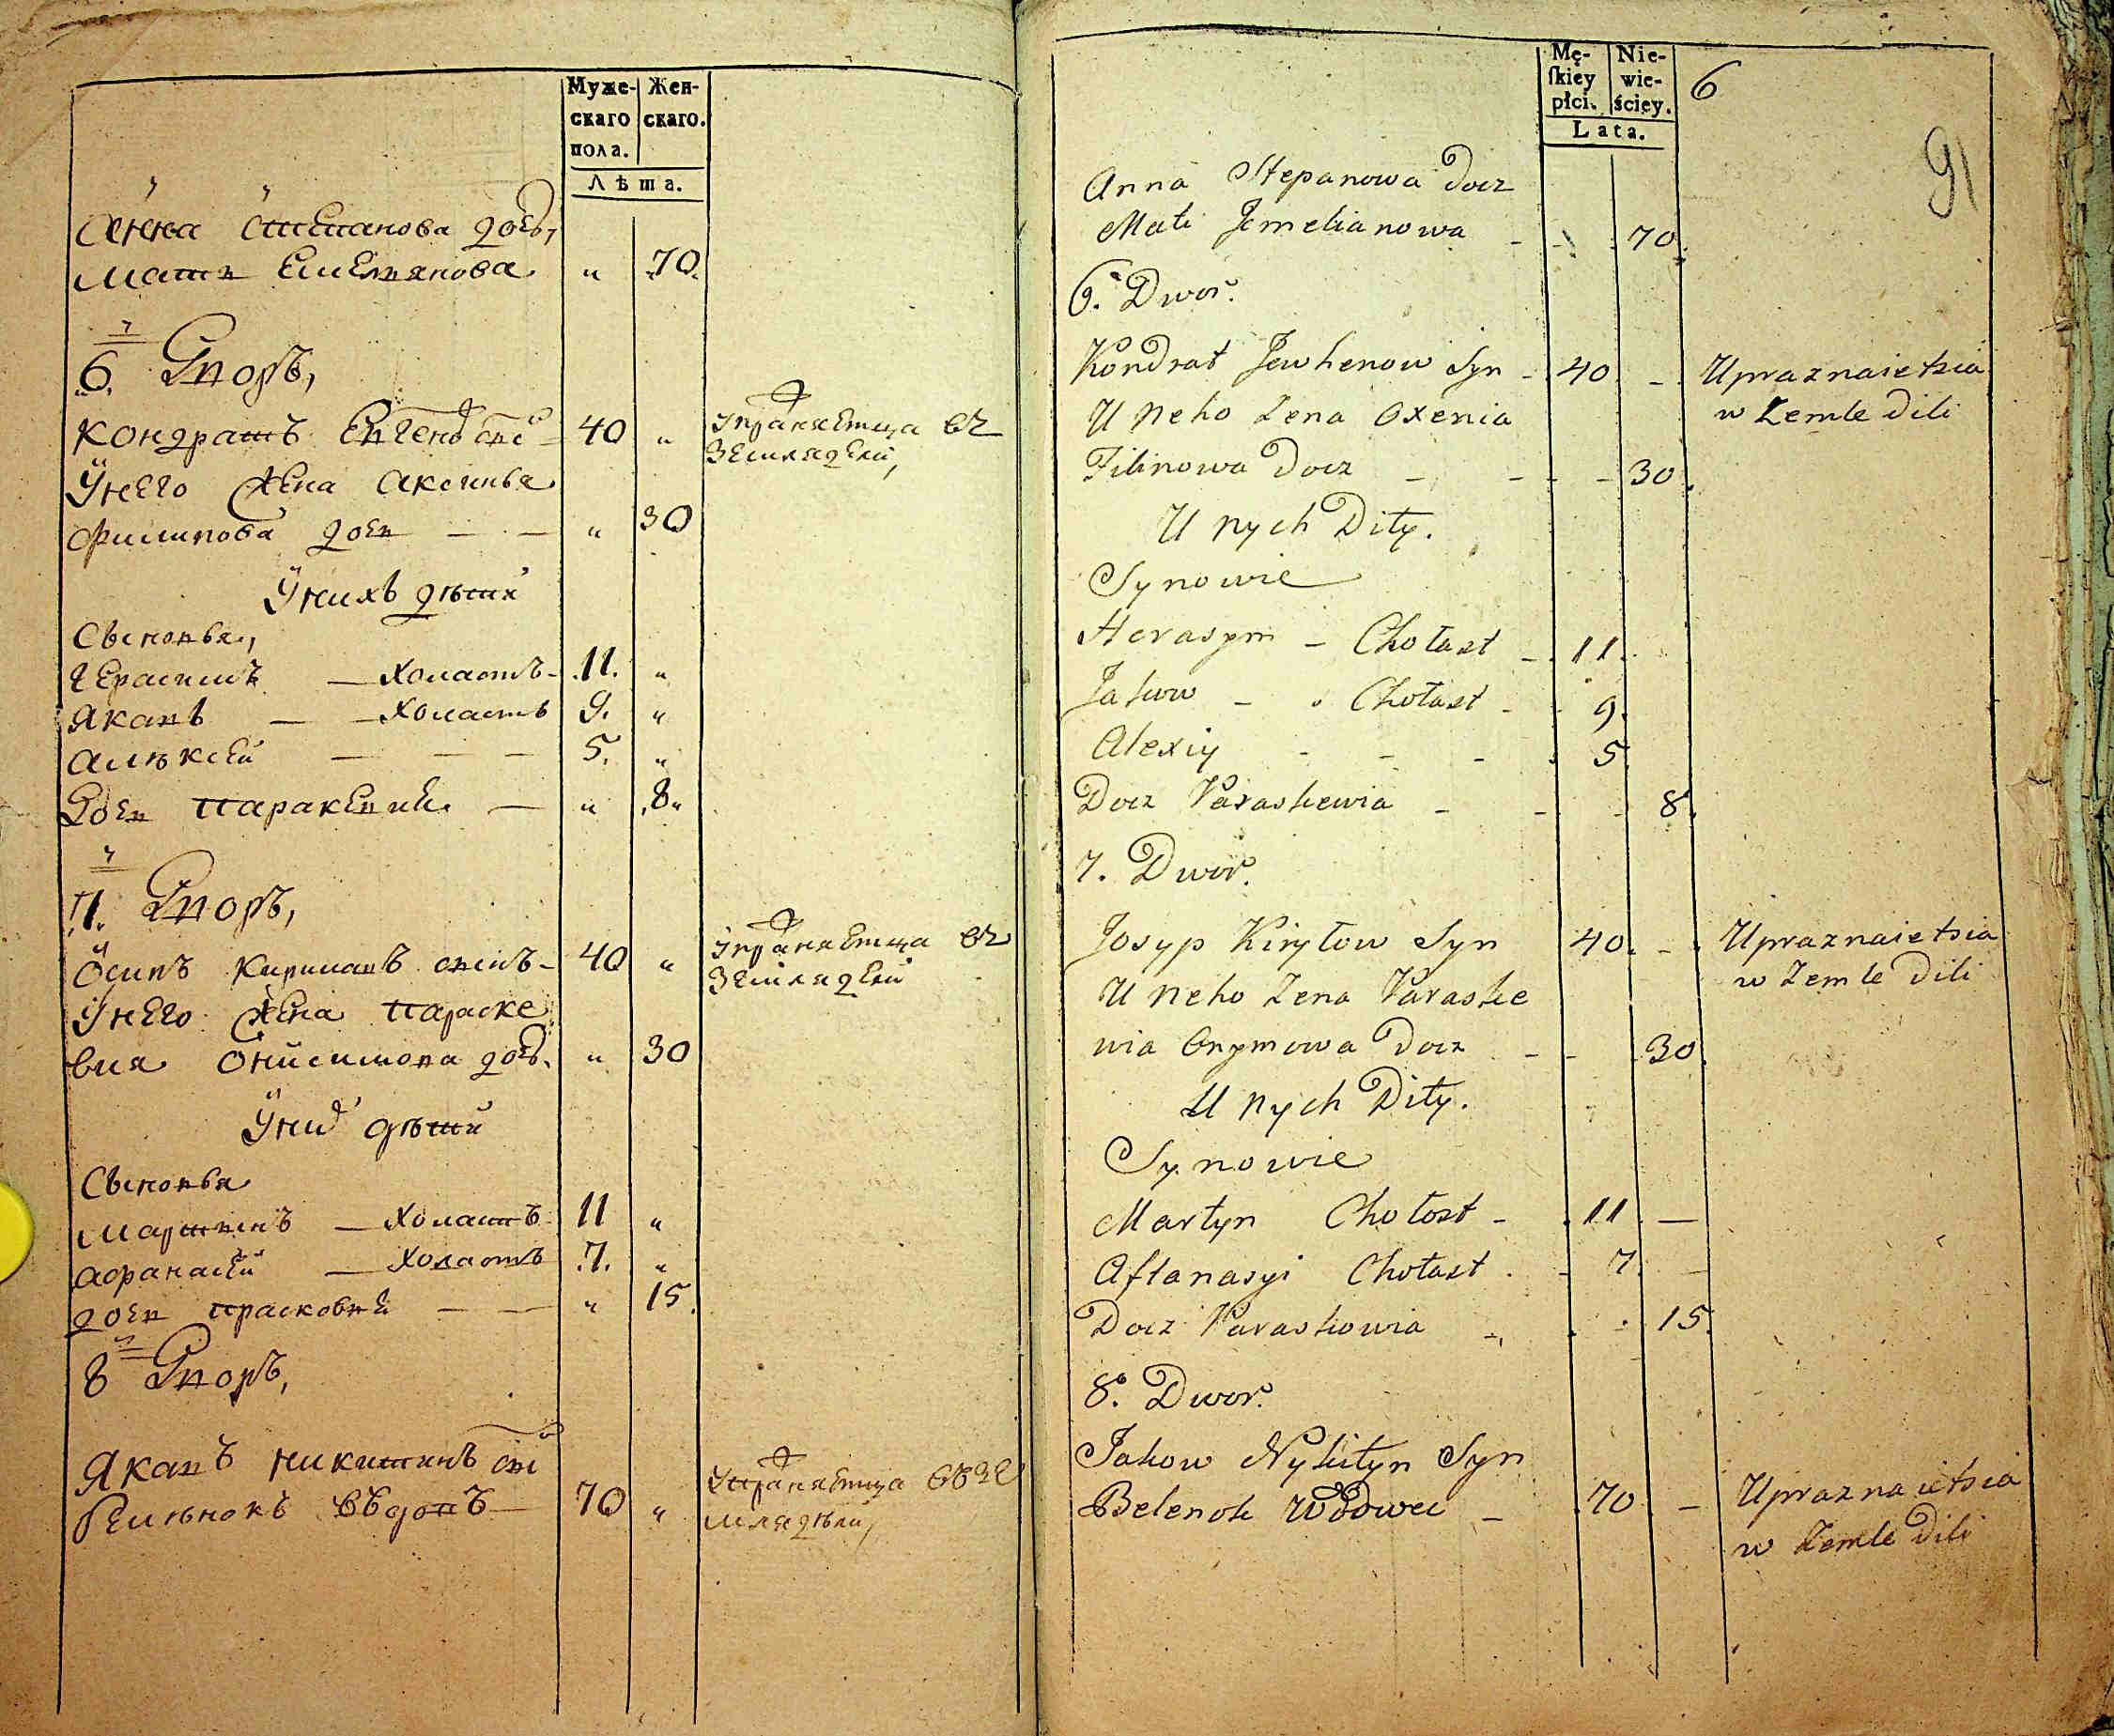 Муже-
скаго
пола.
Жен-
скаго.
Лѣта.
Анна Степанова дочь,
Мати Емелянова " 70.
6. Дворъ,
Кондратъ Евгеновъ сынъ 40 " Упражняетца въ
земляделии,
Унего жена Аксинья
Филипова дочь — — " 30
Унихъ дѣти
Сыновья,
Герасимъ — холастъ - 11. "
Яковъ — — холастъ 9. "
Алѣксей — — — 5. "
Дочь Паракевия — " 8 "
7. Дворъ,
Осипъ Кириловъ сынъ - 40 " Упражняетца въ
земляделии
Унего жена Параске
вия Онисимова дочь. " 30
Уних дѣти
Сыновья
Мартинъ — холастъ 11 "
Афанасей — холастъ 7. "
дочь Прасковия — — " 15.
8 Дворъ,
Яковъ Никитинъ сынъ
Белѣнокъ вдовъ — 70 " Упражняетца въ зе
мляделии,
Mę-
skiey
płci.
Nie-
wie-
ściey.
Lata.
6
91
Anna Stepanowa Docz
Mati Jemelianowa - - 70.
6. Dwor.
Kondrat Jewhenow Syn - 40 - Upraznaietsia
w Zemle Dili
U Neho Zena Oxenia
Filinowa Docz - - - - 30.
U Nych Dity.
Synowie
Herasym - Chołast - 11.
Jakow - Chołast - 9.
Alexiy - - - 5
Docz Paraskewia - - - 8.
7. Dwor.
Josyp Kiryłow Syn 40. - Upraznaietsia
w Zemle Dili
U Neho Zena Paraske
wia Onymowa Docz - - 30.
U Nych Dity.
Synowie
Martyn Chołost - 11 —
Aftanasyi Chołast - 7. —
Docz Paraskowia - - 15.
8. Dwor.
Jakow Nykityn Syn
Belenok Wdowec - 70 - Upraznaietsia
w Zemle Dili